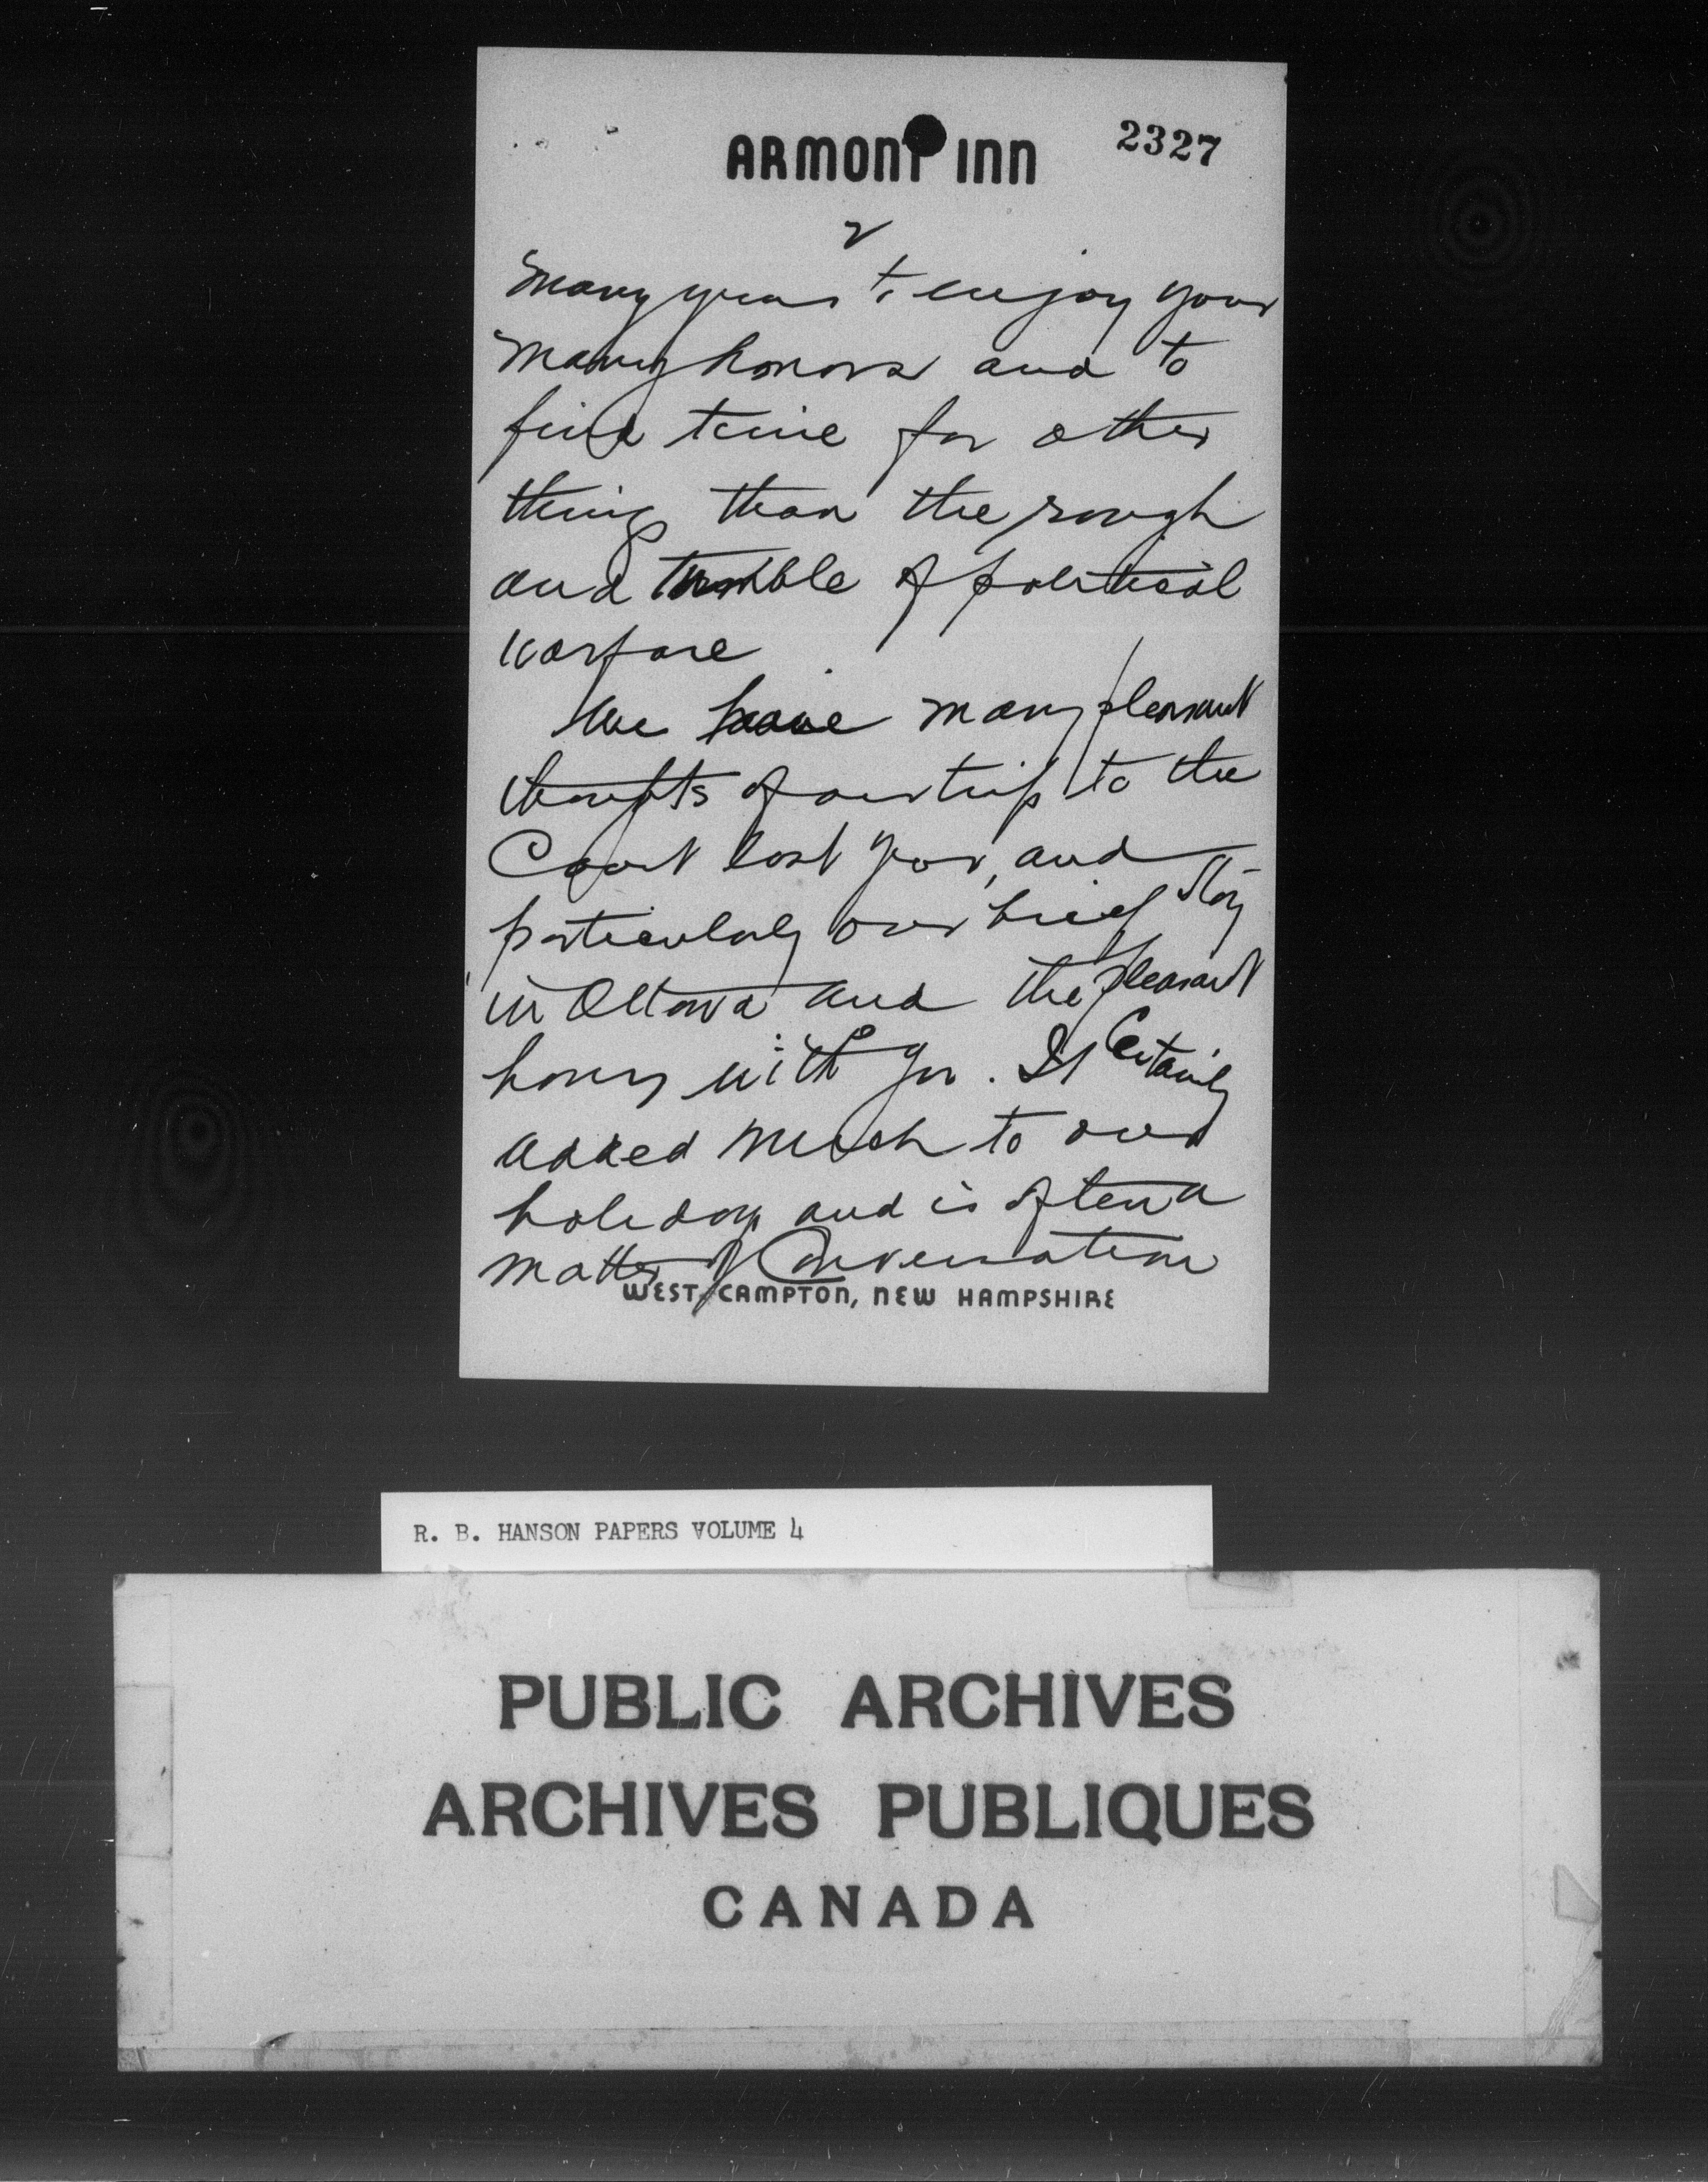 ARMONT INN
2327
2
many years to enjoy your
many honors and to
find time for other
things than the rough
and tumble of political
warfare
We have many pleasant
thoughts of our trip to the
Coast last year, and
particularly our brief stay
in Ottawa and the pleasant
hours with you. It certainly
added much to our
holiday and is often a
matter of Conversation
WEST CAMPTON, NEW HAMPSHIRE
R. B. HANSON PAPERS VOLUME 4
PUBLIC ARCHIVES
ARCHIVES PUBLIQUES
CANADA